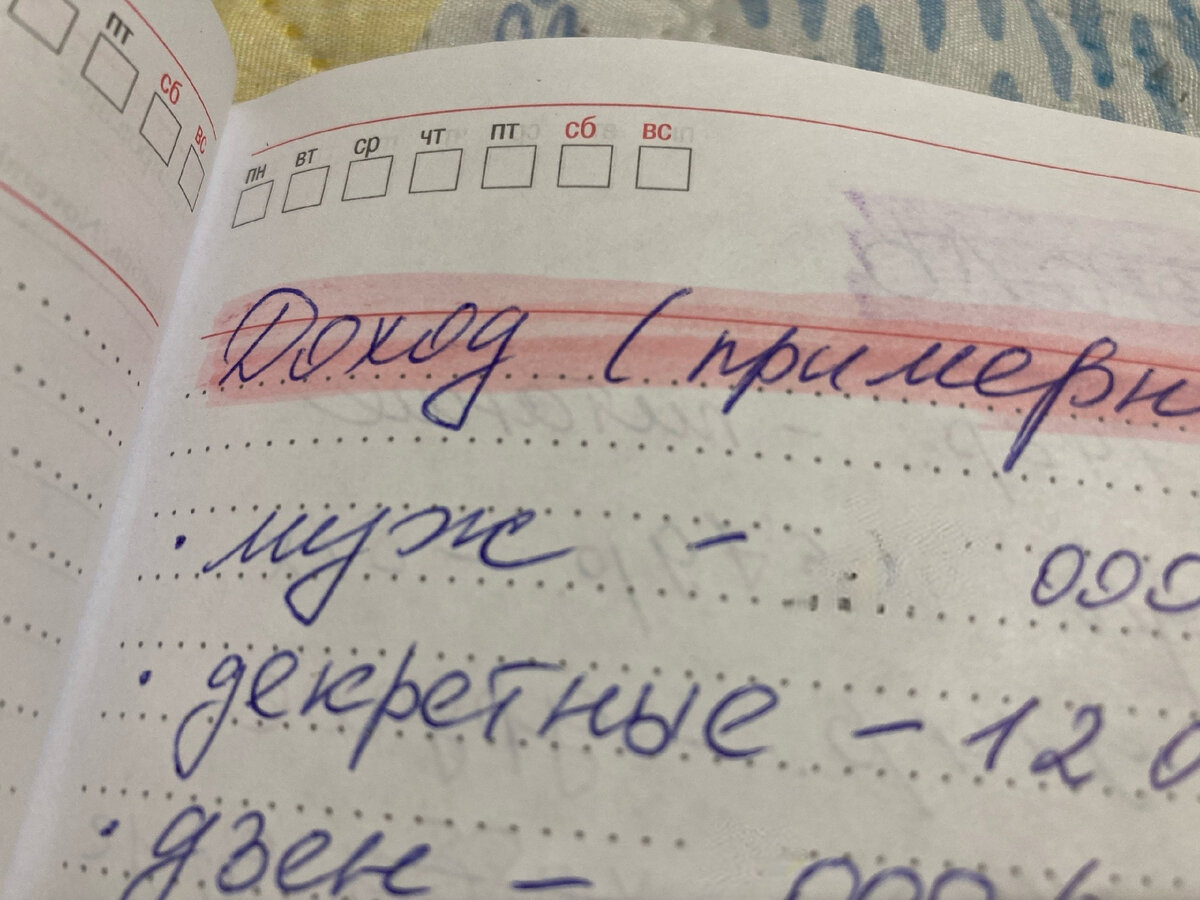 пт сб вс
пн вт ср чт пт сб вс
Доход (примерн
· муж - 000
· декретные - 12 0
· дзен - 000